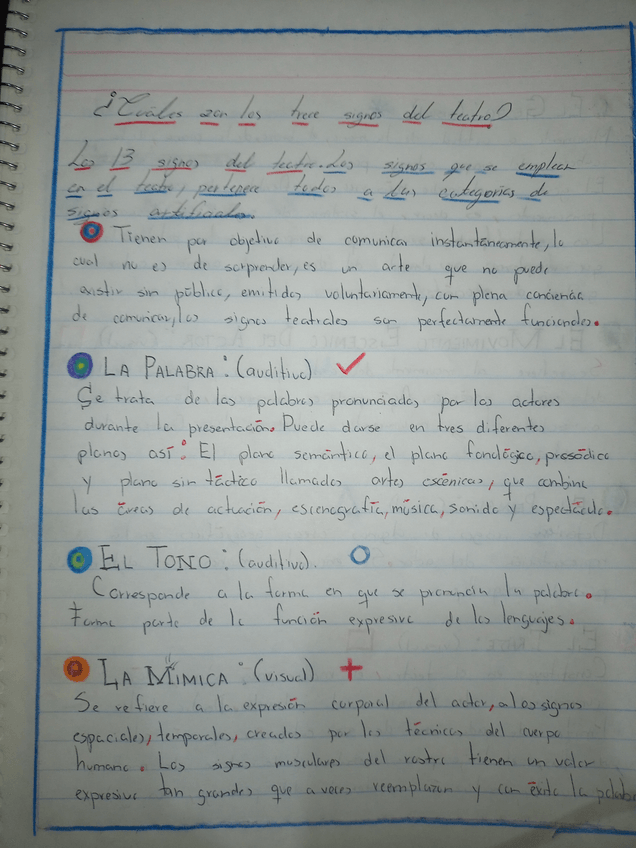 ¿Cuáles son los trece signos del teatro?
Los 13 signos del teatro. Los signos que se emplean
en el teatro, pertenece todos a las categorías de
signos artificiales.
Tienen por objetivo de comunicar instantáneamente, lo
cual no es de sorprender, es un arte que no puede
existir sin público, emitidos voluntariamente, con plena conciencia
de comunicar, los signos teatrales son perfectamente funcionales.
LA PALABRA: (auditivo)
Se trata de las palabras pronunciadas por los actores
durante la presentación. Puede darse en tres diferentes
planos así: El plano semántico, el plano fonológico, prosódico
y plano sin táctico llamados artes escénicas, que combina
las áreas de actuación, escenografía, música, sonido y espectáculo.
EL TONO: (auditivo).
Corresponde a la forma en que se pronuncia la palabra.
Forma parte de la función expresiva de los lenguajes.
LA MÍMICA: (visual)
Se refiere a la expresión corporal del actor, a los signos
espaciales, temporales, creados por las técnicas del cuerpo
humano. Los signos musculares del rostro tienen un valor
expresivo tan grandes que a veces reemplazan y con éxito la palabra